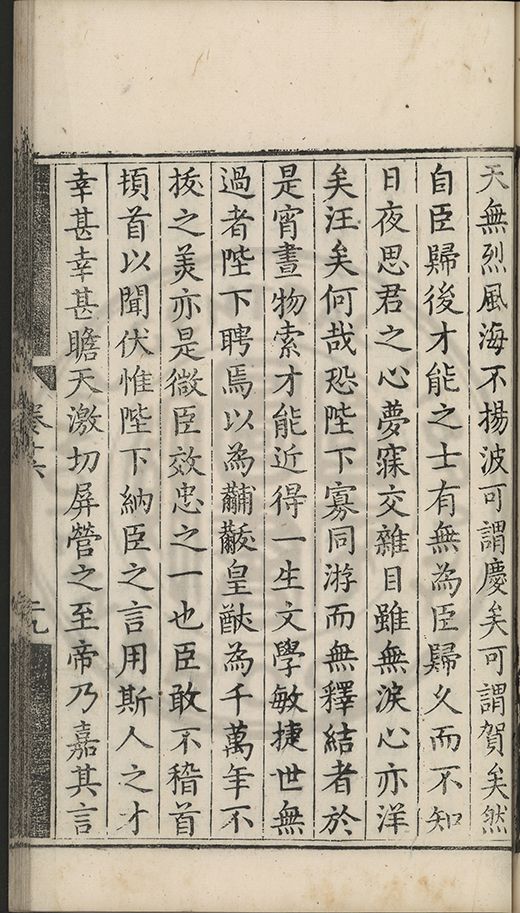 天無烈風海不揚波可謂慶矣可謂賀矣然
自臣歸後才能之士有無為臣歸久而不知
日夜思君之心夢寐交雜目雖無淚心亦洋
矣汪矣何哉恐陛下寡同游而無釋結者於
是宵晝物索才能近得一生文學敏捷世無
過者陛下聘焉以為黼黻皇猷為千萬年不
拔之美亦是微臣效忠之一也臣敢不稽首
頓首以聞伏惟陛下納臣之言用斯人之才
幸甚幸甚瞻天激切屏營之至帝乃嘉其言
卷十六
元